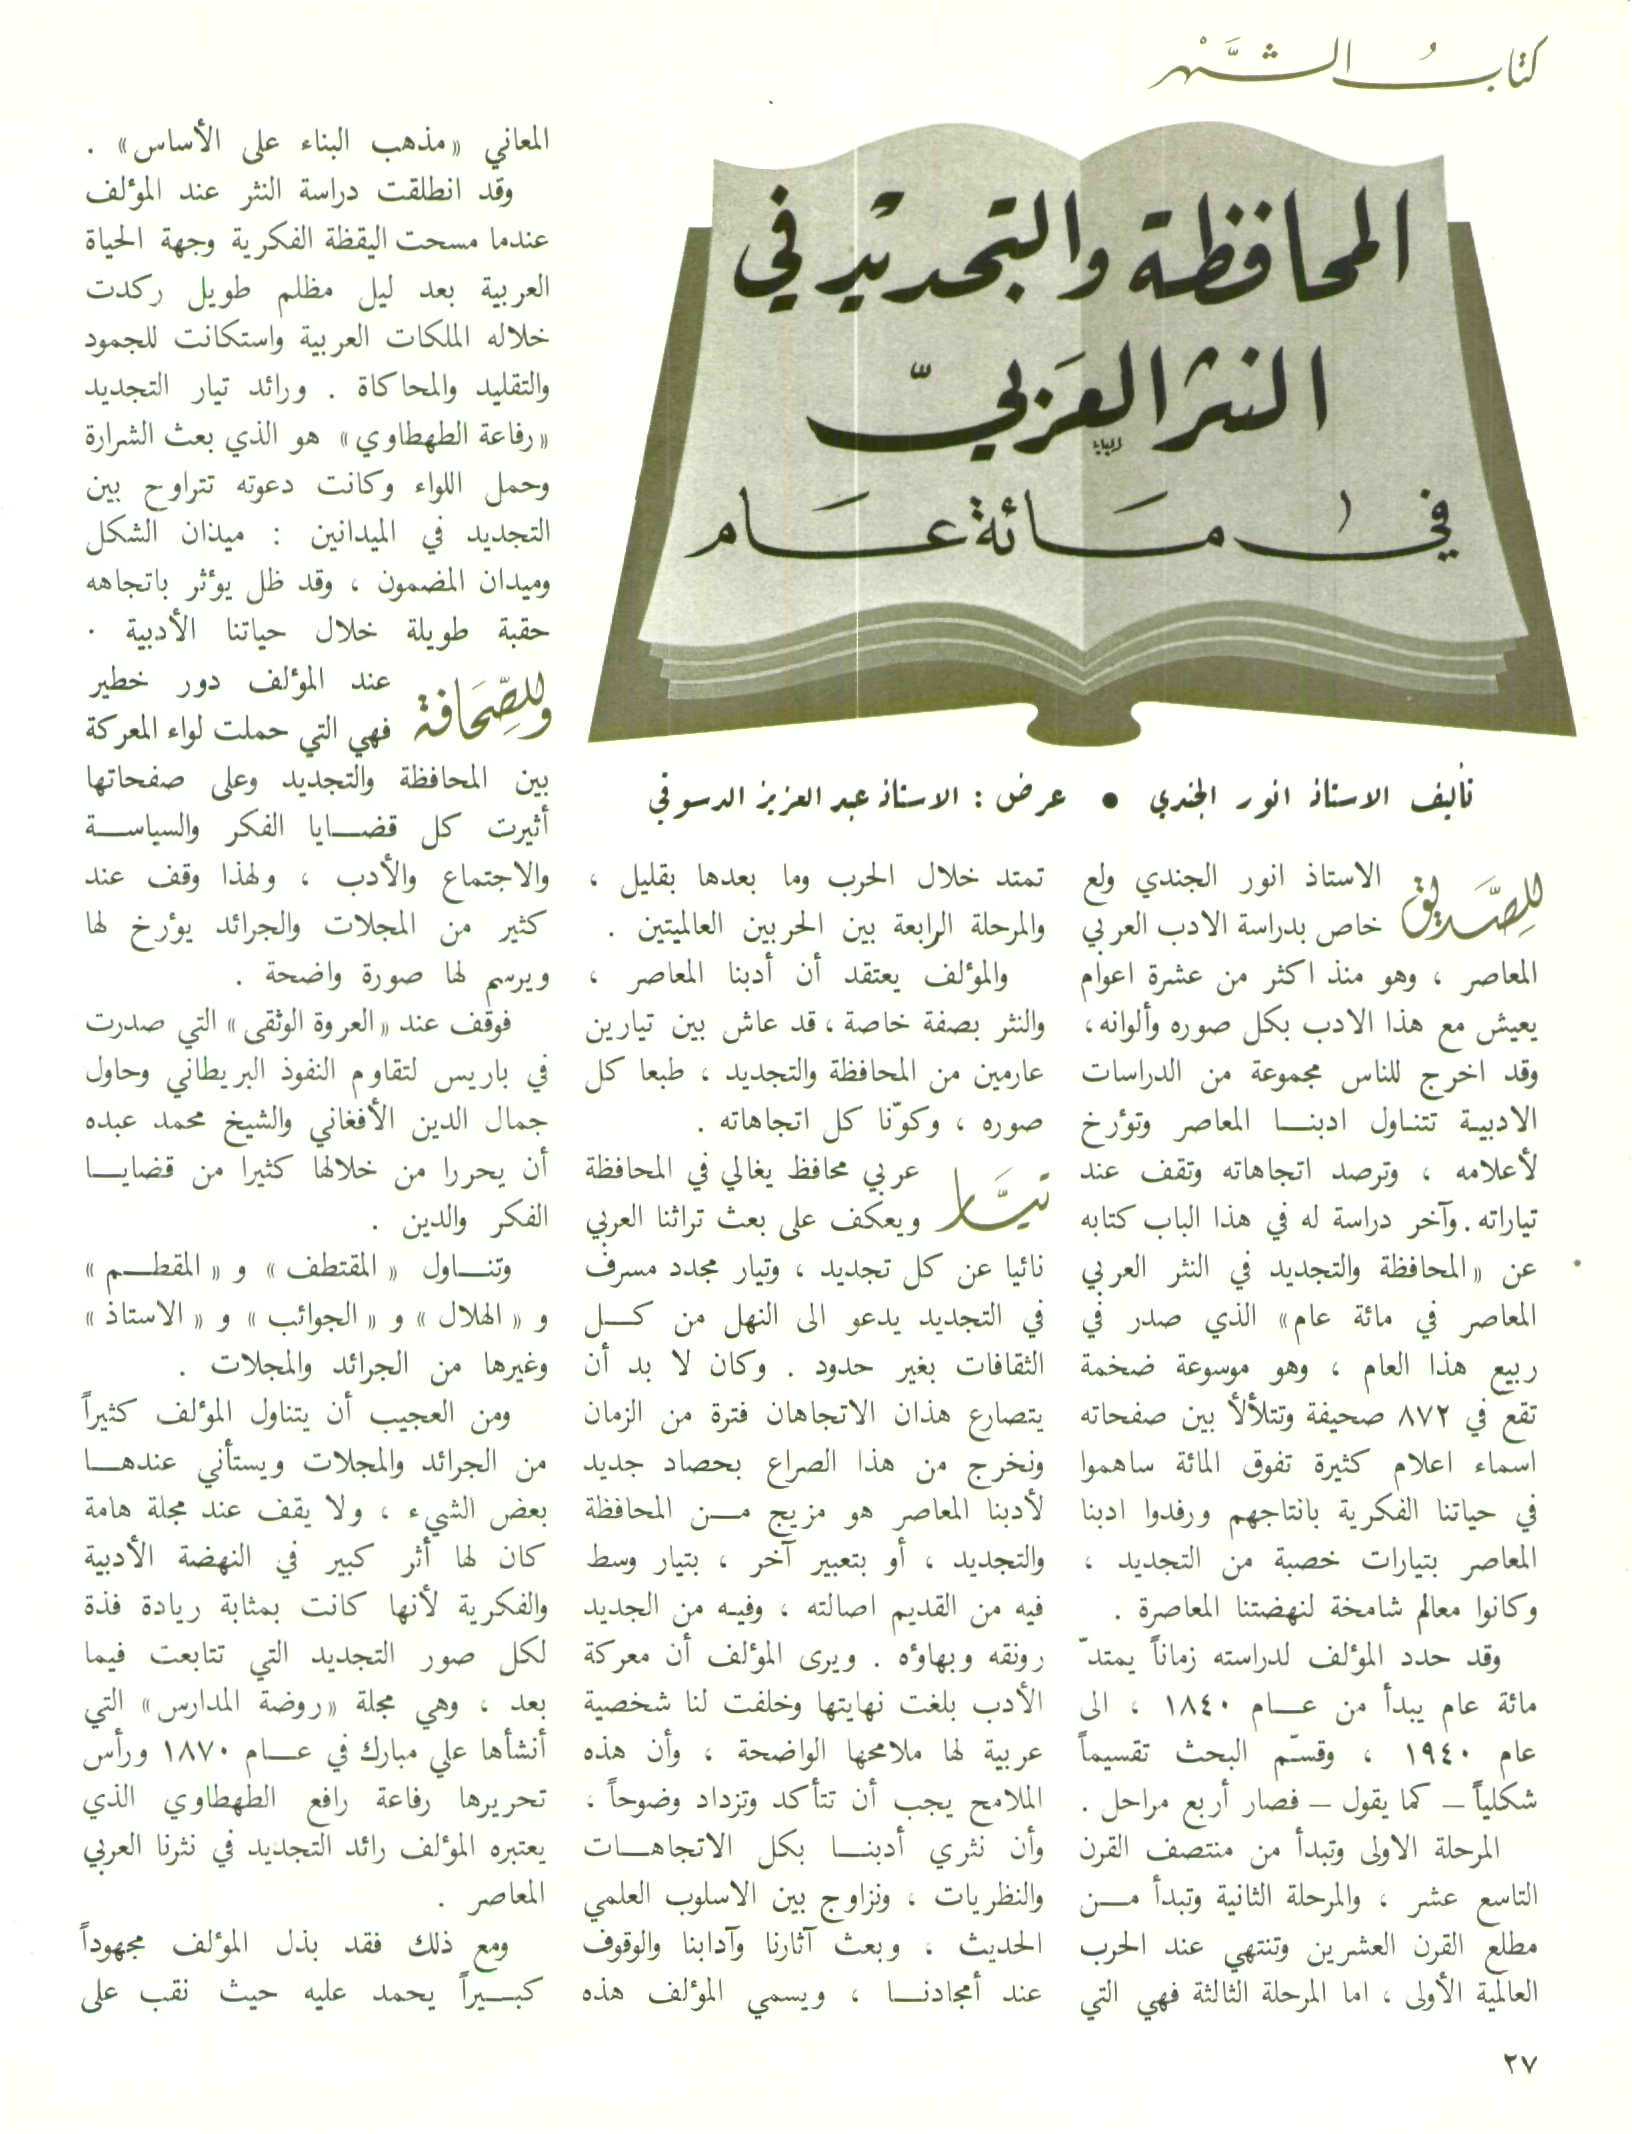 كتابُ الشَّهْر
المحافظة والتجديْد في
النثر العَربيّ
في مَائة عَام
تأليف الاستاذ انور الجندي • عرض : الاستاذ عبد العزيز الدسوقي
للصَّديق الاستاذ انور الجندي ولع
خاص بدراسة الادب العربي
المعاصر ، وهو منذ اكثر من عشرة اعوام
يعيش مع هذا الادب بكل صوره وألوانه ،
وقد اخرج للناس مجموعة من الدراسات
الادبية تتناول ادبنا المعاصر وتؤرخ
لأعلامه ، وترصد اتجاهاته وتقف عند
تياراته . وآخر دراسة له في هذا الباب كتابه
عن «المحافظة والتجديد في النثر العربي
المعاصر في مائة عام» الذي صدر في
ربيع هذا العام ، وهو موسوعة ضخمة
تقع في ٨٧٢ صحيفة وتتلألأ بين صفحاته
اسماء اعلام كثيرة تفوق المائة ساهموا
في حياتنا الفكرية بانتاجهم ورفدوا ادبنا
المعاصر بتيارات خصبة من التجديد ،
وكانوا معالم شامخة لنهضتنا المعاصرة .
وقد حدد المؤلف لدراسته زماناً يمتدّ
مائة عام يبدأ من عام ١٨٤٠ ، الى
عام ١٩٤٠ ، وقسّم البحث تقسيماً
شكلياً – كما يقول – فصار أربع مراحل .
المرحلة الاولى وتبدأ من منتصف القرن
التاسع عشر ، والمرحلة الثانية وتبدأ من
مطلع القرن العشرين وتنتهي عند الحرب
العالمية الأولى ، اما المرحلة الثالثة فهي التي
تمتد خلال الحرب وما بعدها بقليل ،
والمرحلة الرابعة بين الحربين العالميتين .
والمؤلف يعتقد أن أدبنا المعاصر ،
والنثر بصفة خاصة ، قد عاش بين تيارين
عارمين من المحافظة والتجديد ، طبعا كل
صوره ، وكوّنا كل اتجاهاته .
تيَّار عربي محافظ يغالي في المحافظة
ويعكف على بعث تراثنا العربي
نائيا عن كل تجديد ، وتيار مجدد مسرف
في التجديد يدعو الى النهل من كل
الثقافات بغير حدود . وكان لا بد أن
يتصارع هذان الاتجاهان فترة من الزمان
ونخرج من هذا الصراع بحصاد جديد
لأدبنا المعاصر هو مزيج من المحافظة
والتجديد ، أو بتعبير آخر ، بتيار وسط
فيه من القديم اصالته ، وفيه من الجديد
رونقه وبهاؤه . ويرى المؤلف أن معركة
الأدب بلغت نهايتها وخلفت لنا شخصية
عربية لها ملامحها الواضحة ، وأن هذه
الملامح يجب أن تتأكد وتزداد وضوحاً ،
وأن نثري أدبنا بكل الاتجاهات
والنظريات ، ونزاوج بين الاسلوب العلمي
الحديث ، وبعث آثارنا وآدابنا والوقوف
عند أمجادنا ، ويسمي المؤلف هذه
المعاني «مذهب البناء على الأساس» .
وقد انطلقت دراسة النثر عند المؤلف
عندما مسحت اليقظة الفكرية وجهة الحياة
العربية بعد ليل مظلم طويل ركدت
خلاله الملكات العربية واستكانت للجمود
والتقليد والمحاكاة . ورائد تيار التجديد
«رفاعة الطهطاوي» هو الذي بعث الشرارة
وحمل اللواء وكانت دعوته تتراوح بين
التجديد في الميدانين : ميدان الشكل
وميدان المضمون ، وقد ظل يؤثر باتجاهه
حقبة طويلة خلال حياتنا الأدبية .
وللصِّحَافة عند المؤلف دور خطير
فهي التي حملت لواء المعركة
بين المحافظة والتجديد وعلى صفحاتها
أثيرت كل قضايا الفكر والسياسة
والاجتماع والأدب ، ولهذا وقف عند
كثير من المجلات والجرائد يؤرخ لها
ويرسم لها صورة واضحة .
فوقف عند «العروة الوثقى» التي صدرت
في باريس لتقاوم النفوذ البريطاني وحاول
جمال الدين الأفغاني والشيخ محمد عبده
أن يحررا من خلالها كثيرا من قضايا
الفكر والدين .
وتناول «المقتطف» و «المقطم»
و «الهلال» و «الجوائب» و «الاستاذ»
وغيرها من الجرائد والمجلات .
ومن العجيب أن يتناول المؤلف كثيراً
من الجرائد والمجلات ويستأني عندها
بعض الشيء ، ولا يقف عند مجلة هامة
كان لها أثر كبير في النهضة الأدبية
والفكرية لأنها كانت بمثابة ريادة فذة
لكل صور التجديد التي تتابعت فيما
بعد ، وهي مجلة «روضة المدارس» التي
أنشأها علي مبارك في عام ١٨٧٠ ورأس
تحريرها رفاعة رافع الطهطاوي الذي
يعتبره المؤلف رائد التجديد في نثرنا العربي
المعاصر .
ومع ذلك فقد بذل المؤلف مجهوداً
كبيراً يحمد عليه حيث نقب على
٢٧